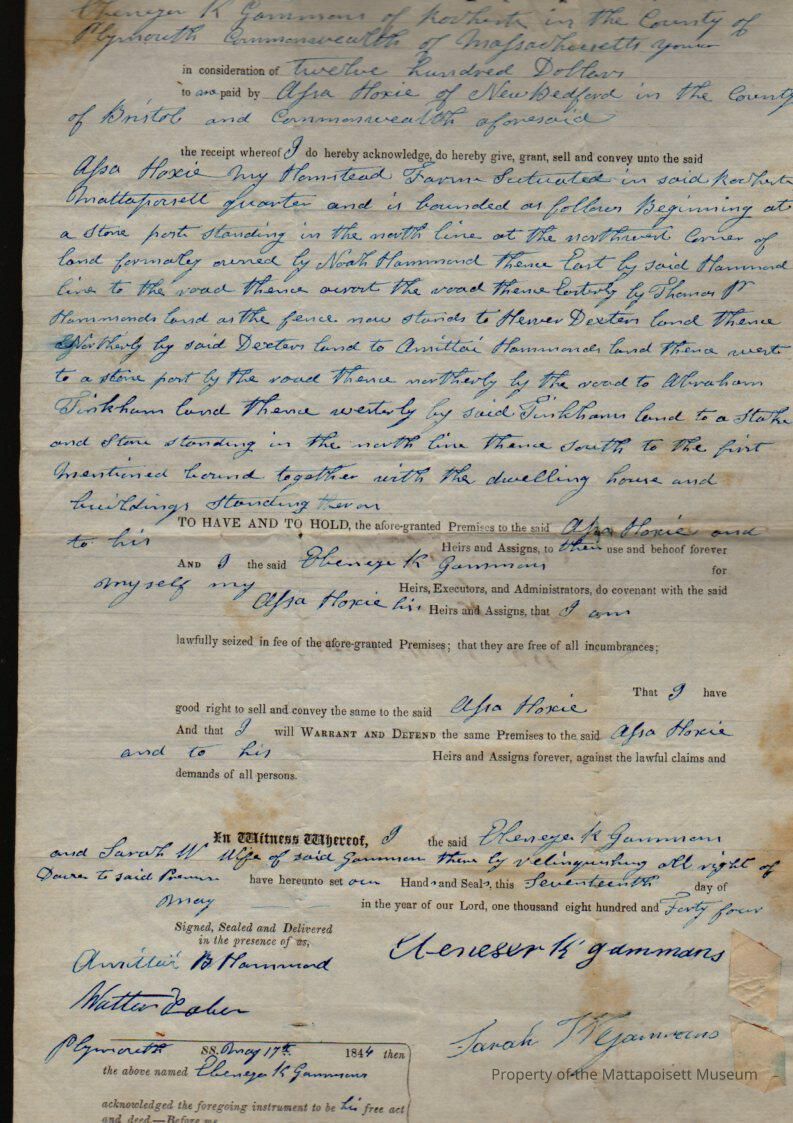 Ebenezer K Gammons of Rochester in the County of
Plymouth Commonwealth of Massachusetts yeoman
in consideration of twelve hundred Dollars
to me paid by Assa Hoxie of New Bedford in the County
of Bristol and Commonwealth aforesaid
the receipt whereof I do hereby acknowledge, do hereby give, grant, sell and convey unto the said
Assa Hoxie my Homstead Farm Setuated in said Rochester
Mattapoisett quarter and is bounded as follows Beginning at
a stone post standing in the north line at the northwest corner of
land formaly owned by Noah Hammond thence East by said Hammond
line to the road thence acrost the road thence Easterly by Thomas P
Hammonds land as the fence now stands to Dexters land thence
Northerly by said Dexters land to Amittai Hammonds land thence west
to a stone post by the road thence northerly by the road to Abraham
Tinkham land thence westerly by said Tinkhams land to a Stake
and stone standing in the north line thence south to the first
mentioned bound together with the dwelling house and
buildings standing theron
TO HAVE AND TO HOLD, the afore-granted Premises to the said Assa Hoxie and
to his Heirs and Assigns, to their use and behoof forever
AND I the said Ebenezer K Gammons for
myself my Heirs, Executors, and Administrators, do covenant with the said
Assa Hoxie his Heirs and Assigns, that I am
lawfully seized in fee of the afore-granted Premises; that they are free of all incumbrances;
That I have
good right to sell and convey the same to the said Assa Hoxie
And that I will WARRANT AND DEFEND the same Premises to the said Assa Hoxie
and to his Heirs and Assigns forever, against the lawful claims and
demands of all persons.
In Witness Whereof, I the said Ebenezer K Gammons
and Sarah W wife of said Gammons there by relinquishing all right of
Dower to said Premises have hereunto set our Hands and Seals, this Seventeenth day of
May in the year of our Lord, one thousand eight hundred and Forty four
Signed, Sealed and Delivered
in the presence of us,
Amittai B Hammond
Ebenezer K Gammons
Sarah W Gammons
Plymouth SS. May 17th 1844 then
the above named Ebenezer K Gammons
acknowledged the foregoing instrument to be his free act
and deed—Before me
Property of the Mattapoisett Museum